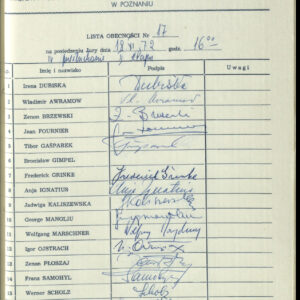 W POZNANIU
LISTA OBECNOŚCI Nr 17
na posiedzeniu Jury dnia 18 XI 72 godz. 16 00
Imię i nazwisko Podpis Uwagi
1 Irena DUBISKA Dubiska
2 Wladimir AWRAMOW Vl. Avramov
3 Zenon BRZEWSKI Z. Brzewski
4 Jean FOURNIER
5 Tibor GAŠPAREK Gašparek
6 Bronisław GIMPEL
7 Frederick GRINKE Frederick Grinke
8 Anja IGNATIUS Anja Ignatius
9 Jadwiga KALISZEWSKA Kaliszewska
10 George MANOLIU G. Manoliu
11 Wolfgang MARSCHNER
12 Igor OJSTRACH
13 Zenan PŁOSZAJ
14 Franz SAMOHYL Samohyl
15 Werner SCHOLZ Scholz